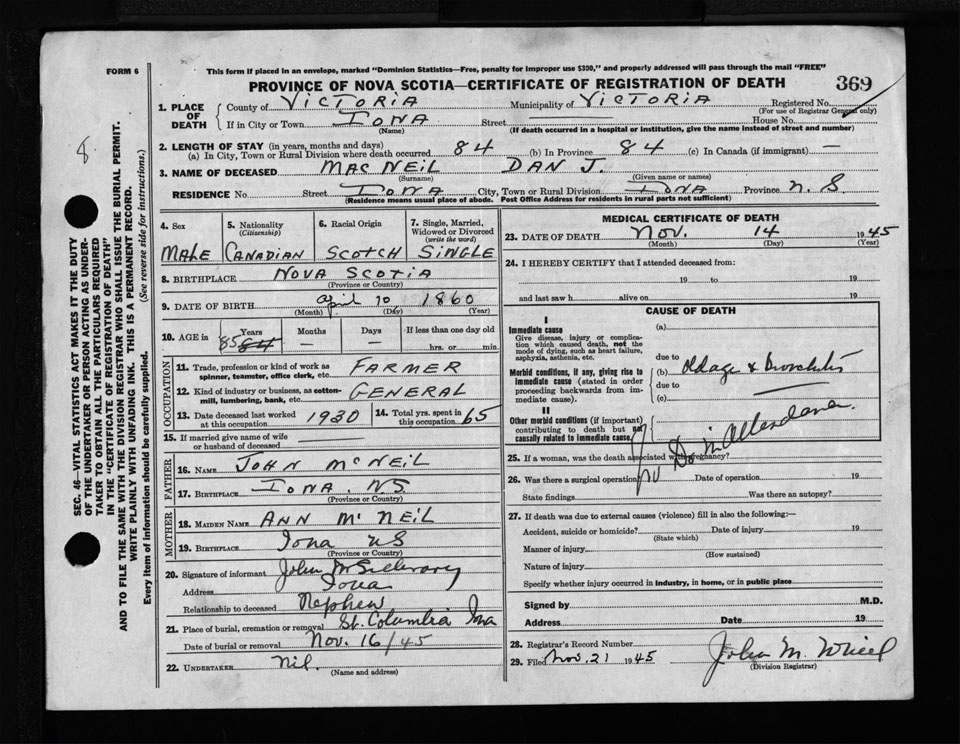 FORM 6
This form if placed in an envelope, marked "Dominion Statistics—Free, penalty for improper use $300," and properly addressed will pass through the mail "FREE"
PROVINCE OF NOVA SCOTIA—CERTIFICATE OF REGISTRATION OF DEATH
369
8
SEC. 46—VITAL STATISTICS ACT MAKES IT THE DUTY
OF THE UNDERTAKER OR PERSON ACTING AS UNDER-
TAKER TO OBTAIN ALL THE PARTICULARS REQUIRED
IN THE "CERTIFICATE OF REGISTRATION OF DEATH"
AND TO FILE THE SAME WITH THE DIVISION REGISTRAR WHO SHALL ISSUE THE BURIAL PERMIT.
WRITE PLAINLY WITH UNFADING INK. THIS IS A PERMANENT RECORD.
Every item of information should be carefully supplied. (See reverse side for instructions.)
1. PLACE OF DEATH
County of VICTORIA Municipality of VICTORIA Registered No.
(For use of Registrar General only)
If in City or Town IONA Street House No.
(Name) (If death occurred in a hospital or institution, give the name instead of street and number)
2. LENGTH OF STAY (in years, months and days)
(a) In City, Town or Rural Division where death occurred 84 (b) In Province 84 (c) In Canada (if immigrant) —
3. NAME OF DECEASED MAC NEIL DAN J.
(Surname) (Given name or names)
RESIDENCE No. Street IONA City, Town or Rural Division IONA Province N. S
(Residence means usual place of abode. Post Office Address for residents in rural parts not sufficient)
4. Sex 5. Nationality (Citizenship) 6. Racial Origin 7. Single, Married, Widowed or Divorced (write the word)
MALE CANADIAN SCOTCH SINGLE
8. BIRTHPLACE NOVA SCOTIA
(Province or Country)
9. DATE OF BIRTH April 10 1860
(Month) (Day) (Year)
10. AGE in Years Months Days If less than one day old
85 84 — — hrs. or min.
OCCUPATION
11. Trade, profession or kind of work as spinner, teamster, office clerk, etc. FARMER
12. Kind of industry or business, as cotton-mill, lumbering, bank, etc. GENERAL
13. Date deceased last worked at this occupation 1930 14. Total yrs. spent in this occupation 65
15. If married give name of wife or husband of deceased
FATHER
16. NAME JOHN McNEIL
17. BIRTHPLACE IONA. N.S.
MOTHER
18. MAIDEN NAME ANN McNEIL
19. BIRTHPLACE Iona NS
(Province or Country)
20. Signature of informant John
Address Iona
Relationship to deceased Nephew
21. Place of burial, cremation or removal St. Columba Iona
Date of burial or removal Nov. 16/45
22. UNDERTAKER nil.
(Name and address)
MEDICAL CERTIFICATE OF DEATH
23. DATE OF DEATH Nov. 14 1945
(Month) (Day) (Year)
24. I HEREBY CERTIFY that I attended deceased from:
19 to 19
and last saw h alive on 19
CAUSE OF DEATH
I
Immediate cause
Give disease, injury or complication which caused death, not the mode of dying, such as heart failure, asphyxia, asthenia, etc.
(a)
due to
Morbid conditions, if any, giving rise to immediate cause (stated in order proceeding backwards from immediate cause).
(b) Oldage & Bronchitis
due to
(c)
II
Other morbid conditions (if important) contributing to death but not causally related to immediate cause.
No Dr in Attendance
25. If a woman, was the death associated with pregnancy?
26. Was there a surgical operation? Date of operation 19
State findings Was there an autopsy?
27. If death was due to external causes (violence) fill in also the following:—
Accident, suicide or homicide? Date of injury 19
(State which)
Manner of injury
(How sustained)
Nature of injury
Specify whether injury occurred in industry, in home, or in public place
Signed by M.D.
Address Date 19
28. Registrar's Record Number
29. Filed Nov. 21 1945 John M.
(Division Registrar)